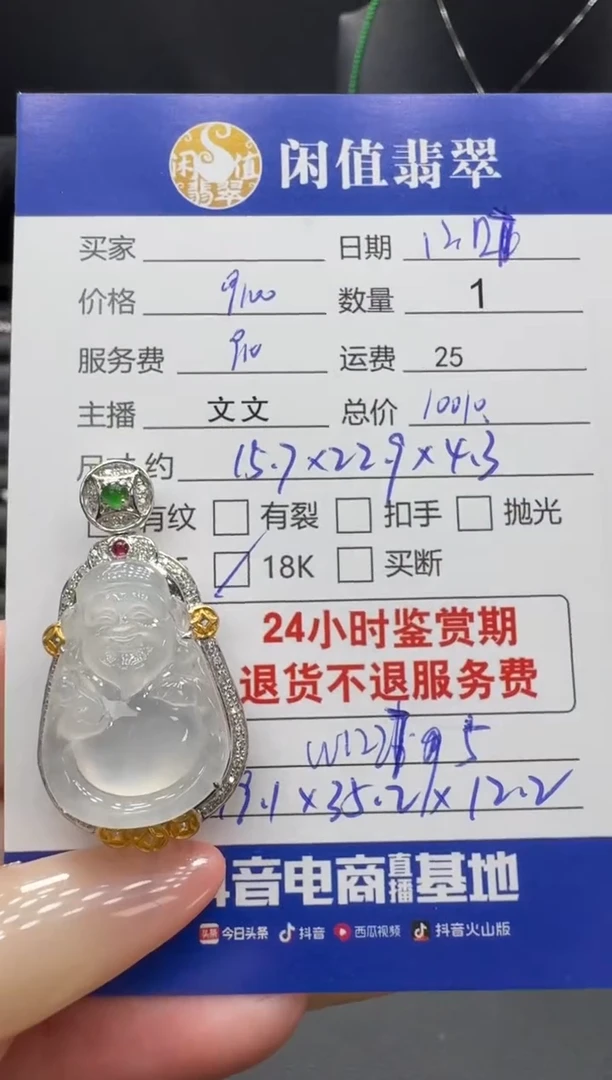 闲值翡翠
闲值翡翠
买家 日期
价格 9100 数量 1
服务费 910 运费 25
主播 文文 总价 10010
尺寸约 15.7×22.9×4.3
有纹 有裂 扣手 抛光
18K 买断
24小时鉴赏期
退货不退服务费
×35.2 × 12.2
抖音电商直播基地
头条 今日头条 抖音 西瓜视频 抖音火山版